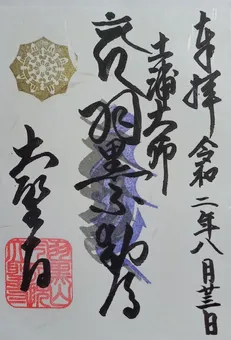 奉拝 令和二年八月廿三日
土浦大師
羽黒不動尊
大聖寺